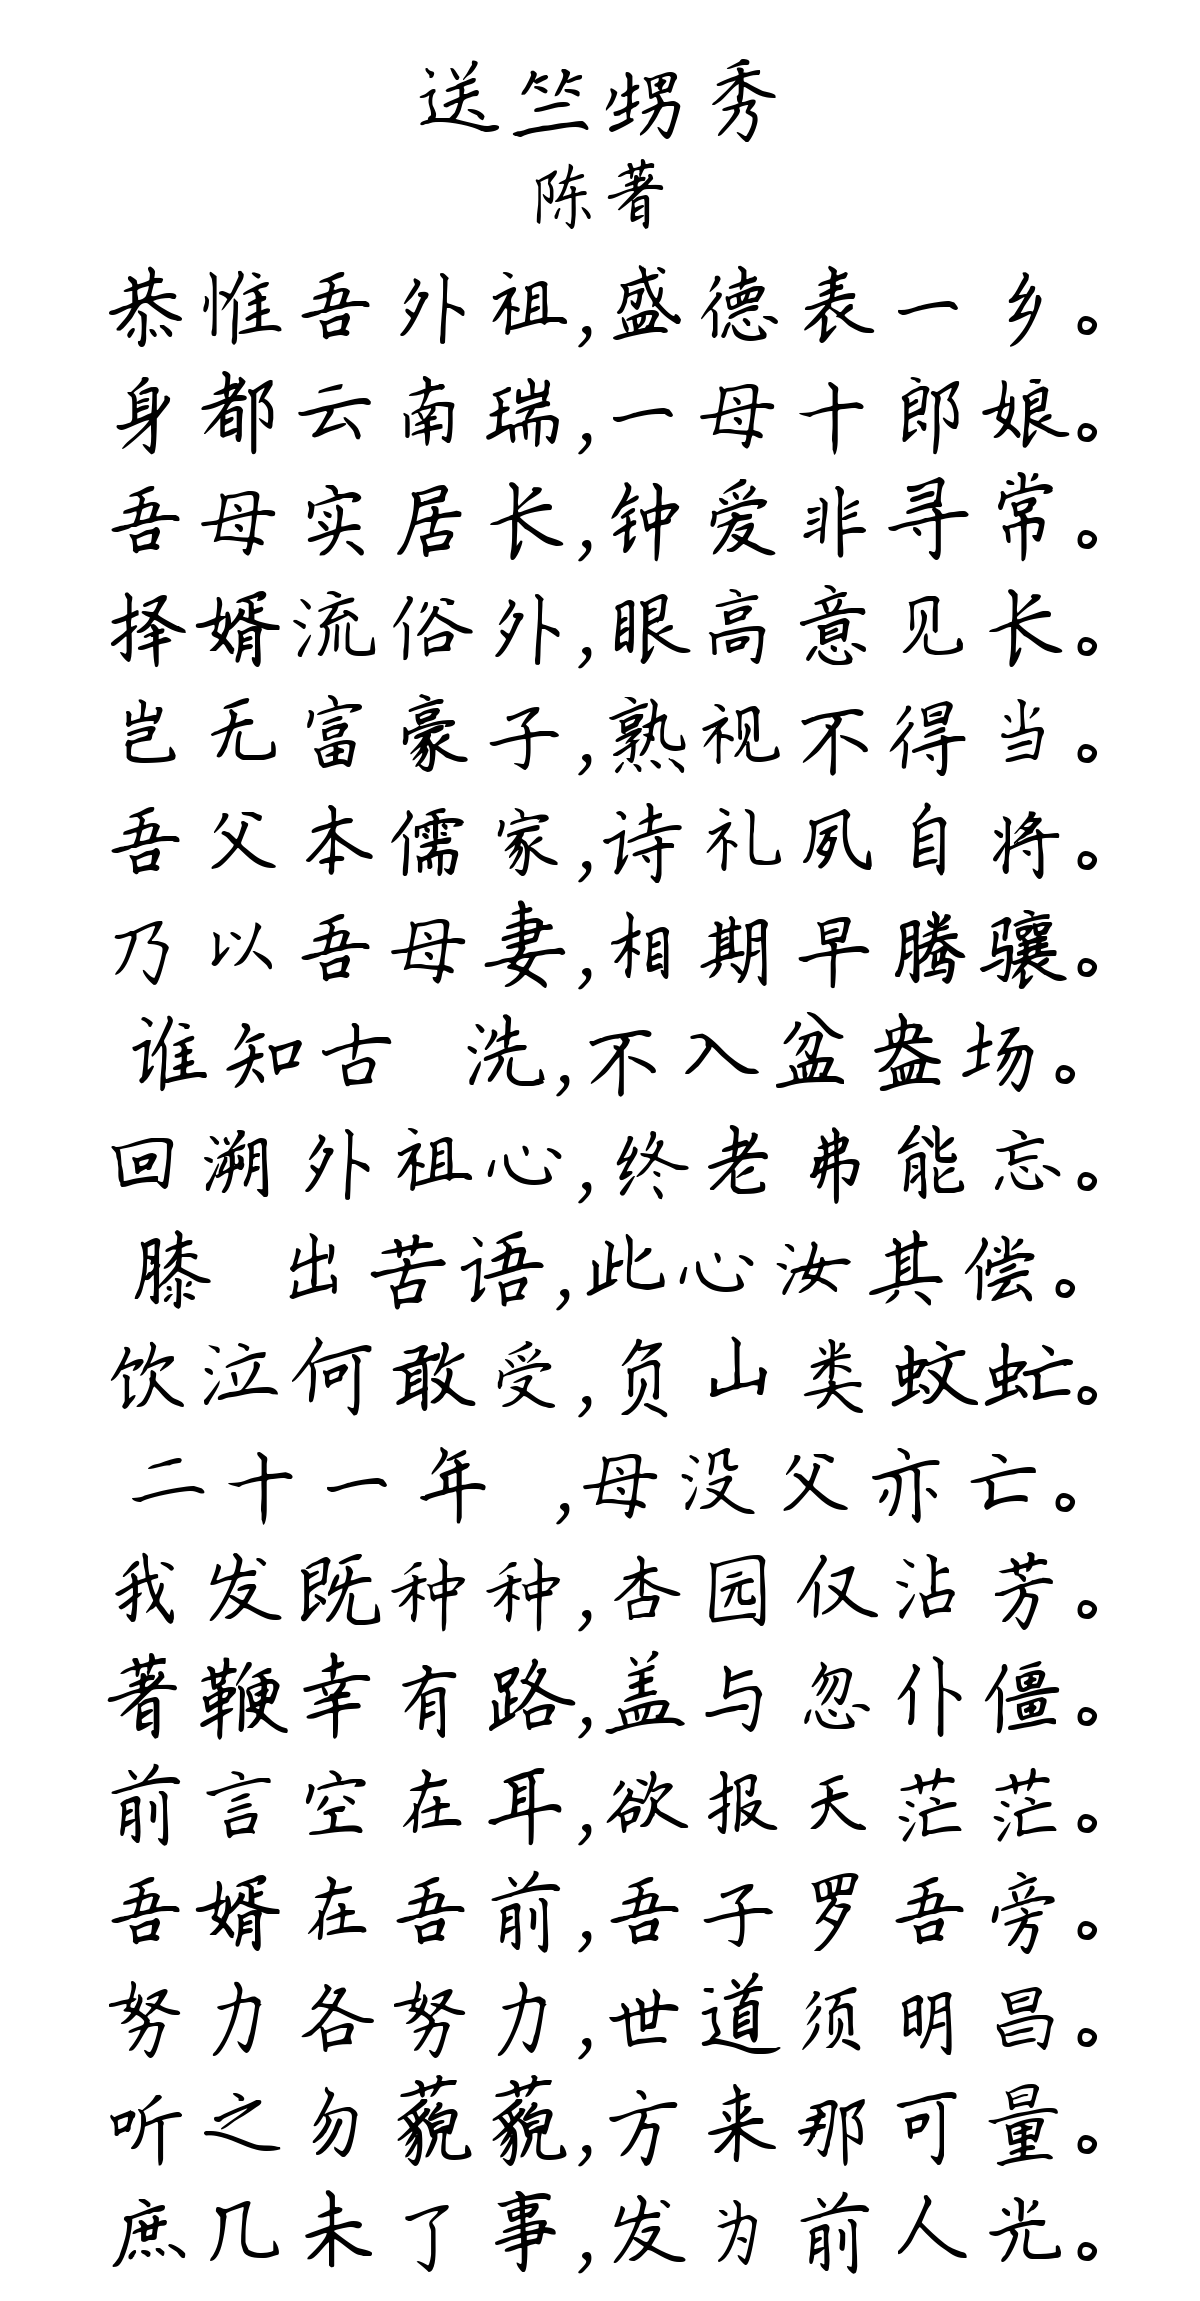 送竺甥秀
陈著
恭惟吾外祖,盛德表一乡。
身都云南瑞,一母十郎娘。
吾母实居长,钟爱非寻常。
择婿流俗外,眼高意见长。
岂无富豪子,熟视不得当。
吾父本儒家,诗礼夙自将。
乃以吾母妻,相期早腾骧。
谁知古 洗,不入盆盎场。
回溯外祖心,终老弗能忘。
膝 出苦语,此心汝其偿。
饮泣何敢受,负山类蚊虻。
二十一年 ,母没父亦亡。
我发既种种,杏园仅沾芳。
著鞭幸有路,盖与忽仆僵。
前言空在耳,欲报天茫茫。
吾婿在吾前,吾子罗吾旁。
努力各努力,世道须明昌。
听之勿藐藐,方来那可量。
庶几未了事,发为前人光。